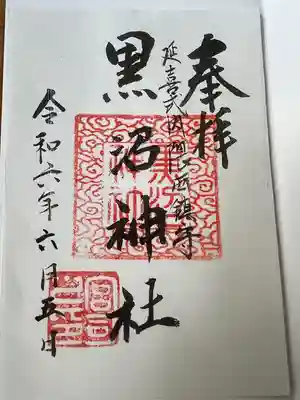 奉拝
延喜式内
鎮守
黒沼神社
令和六年六月五日